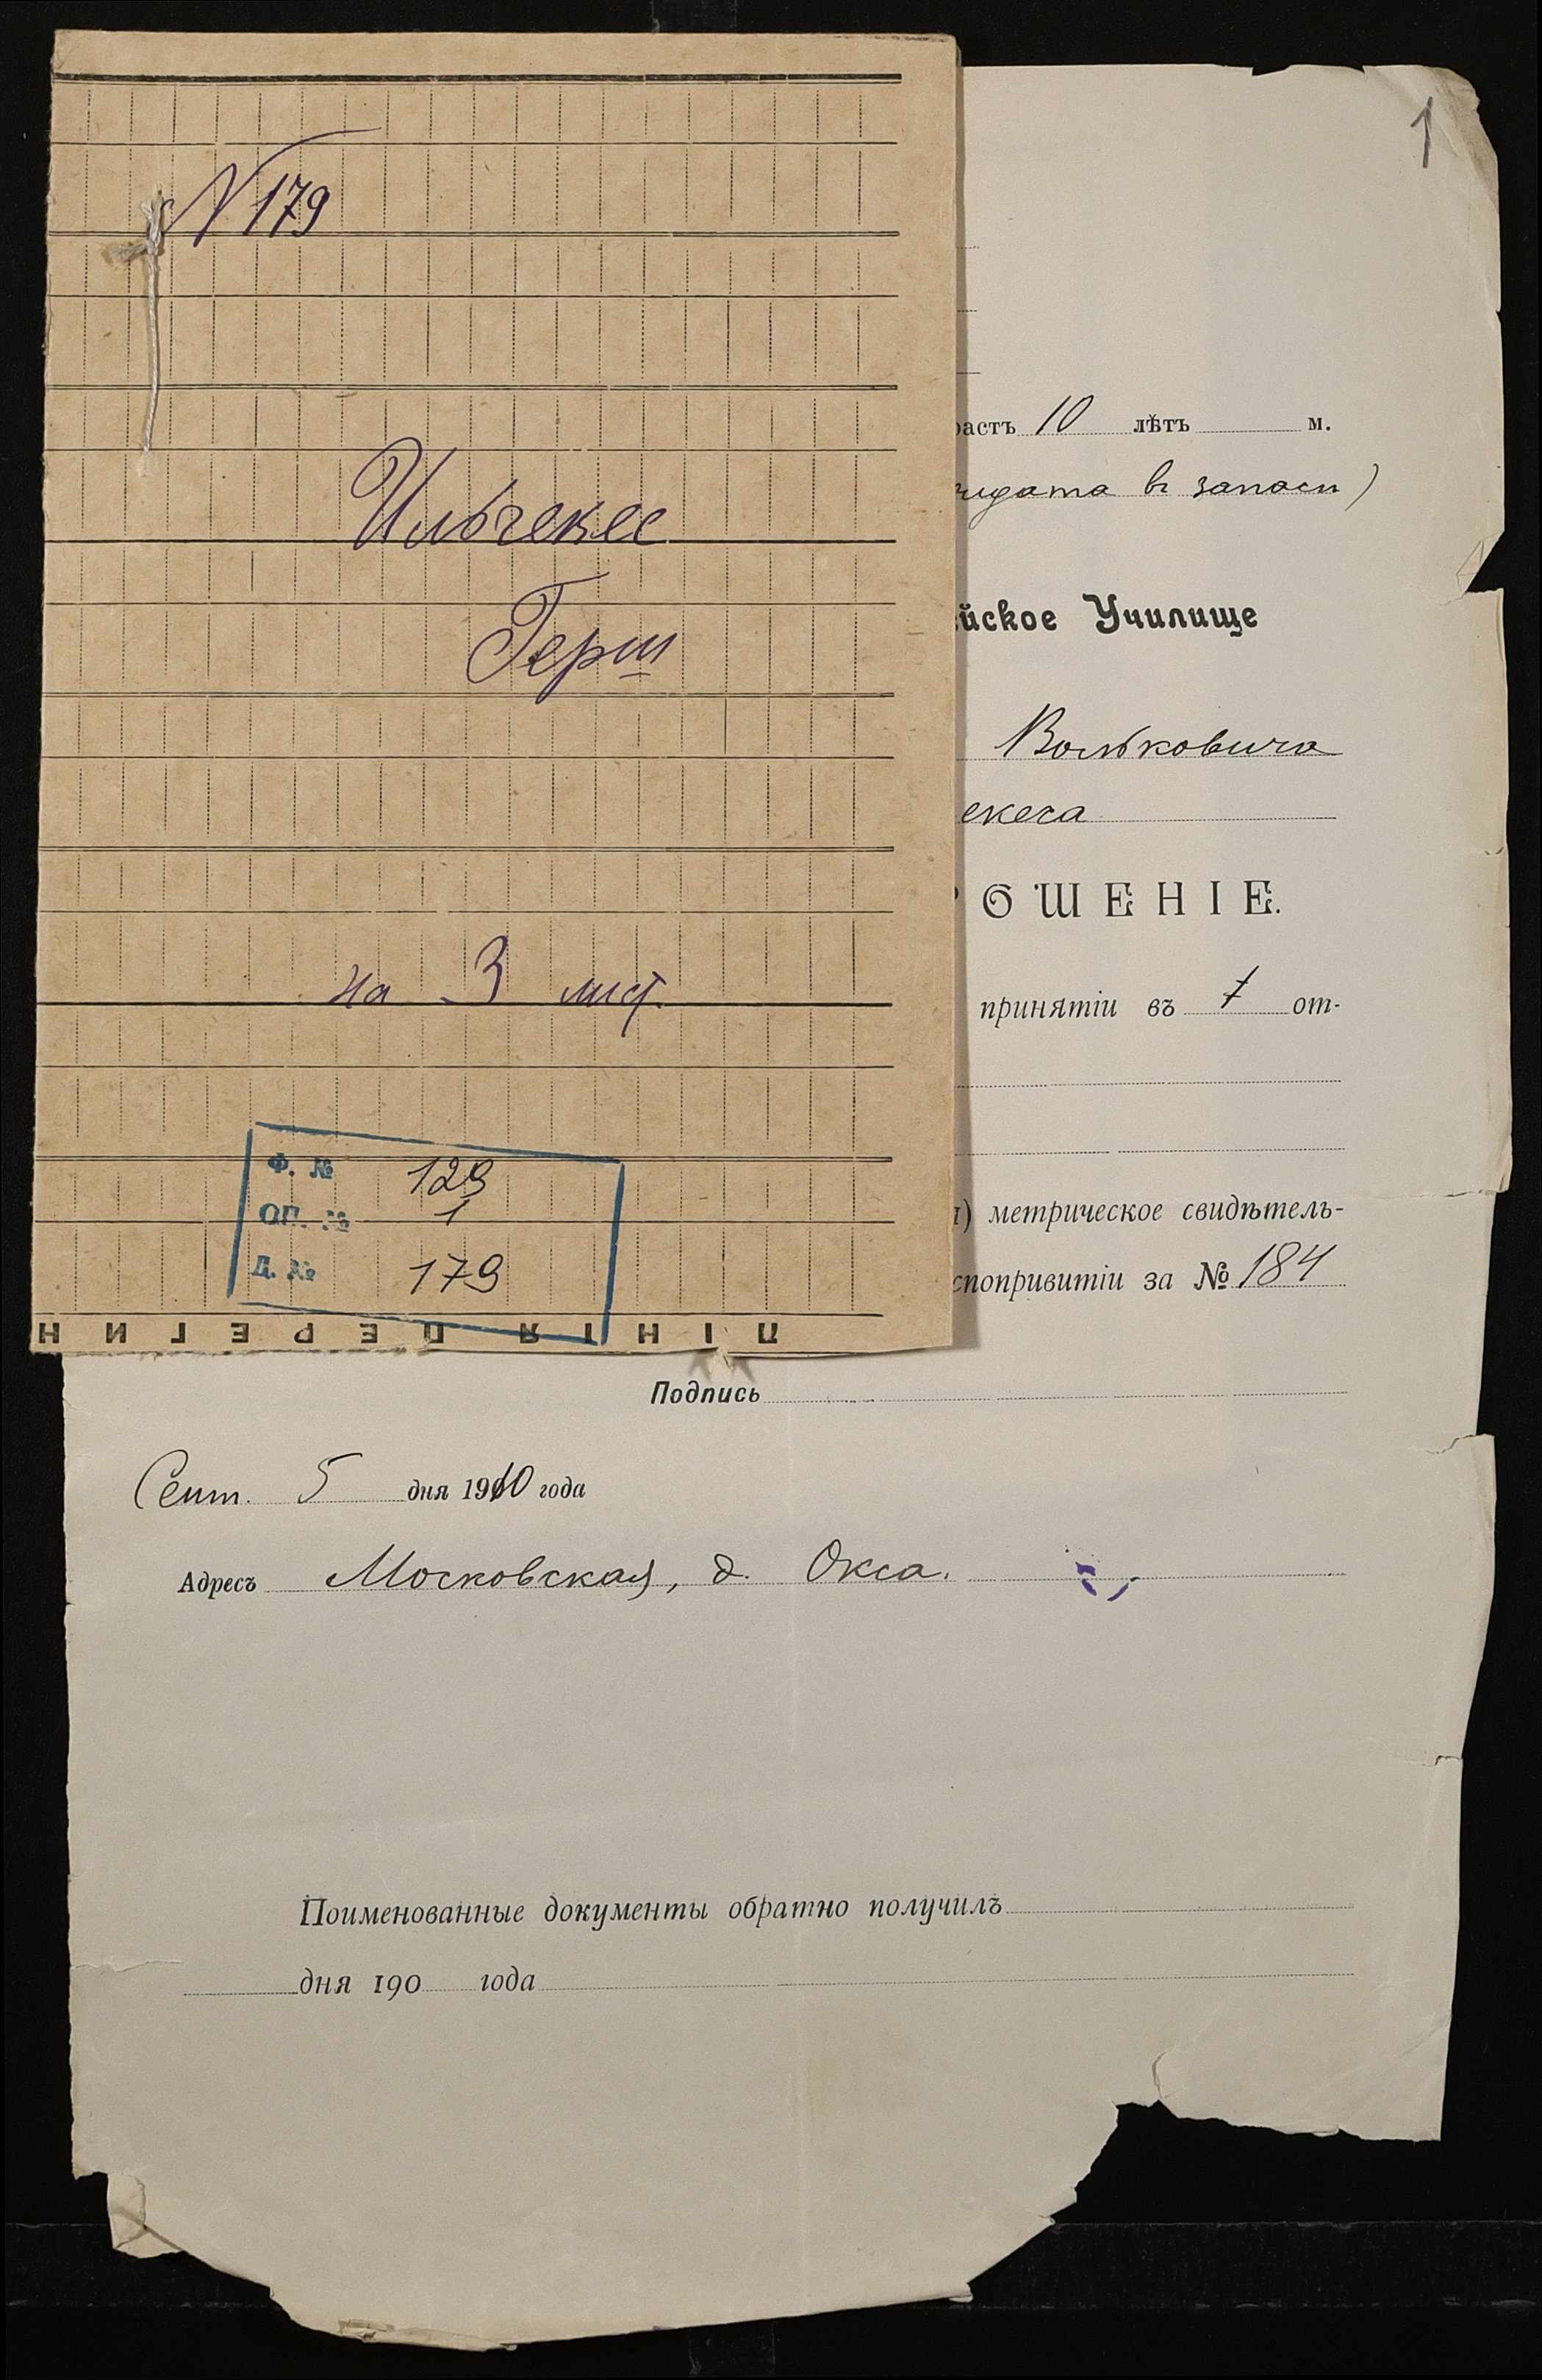 N 179
Ильчекес
Герш
на 3 лист.
Ф. № 129
ОП. № 1
Д. № 179
1
растъ 10 лѣтъ м.
дата въ запасѣ)
йское Училище
Вольковича
екеса
ОШЕНІЕ.
принятіи въ 1 от-
метрическое свидѣтель-
спопривитіи за № 184
Подпись
Сент. 5 дня 1910 года
Адресъ Московская, д. Окса.
Поименованные документы обратно получилъ
дня 190 года